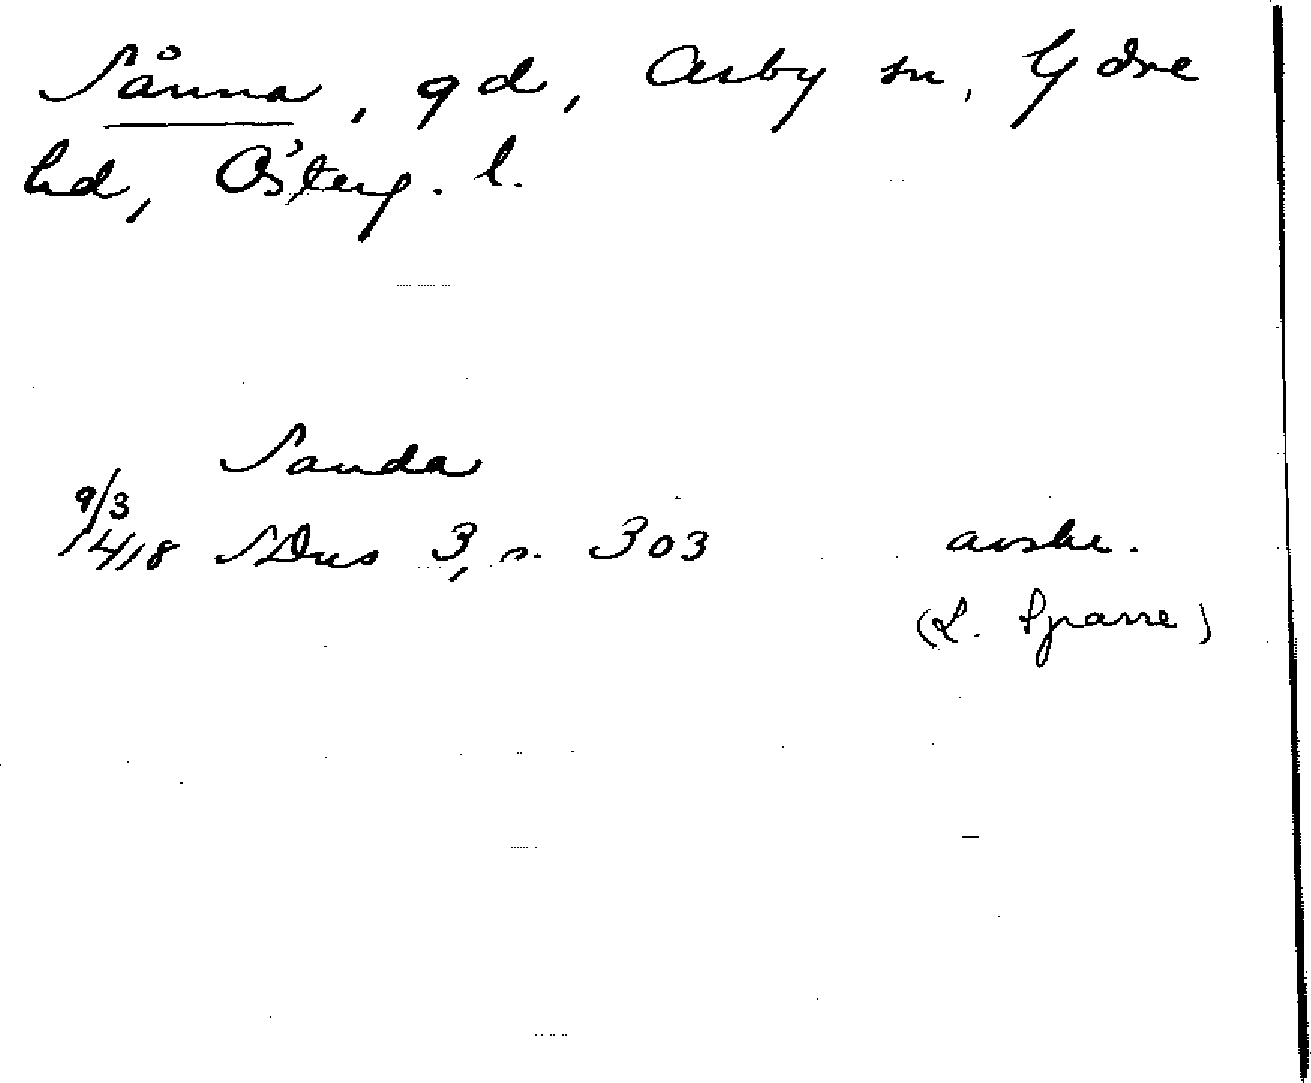 Sånna, gd, Asby sn, Ydre
hd, Österg. l.
Sanda
9/3
1418 SDns 3, s. 303 avskr.
(L. Sparre)